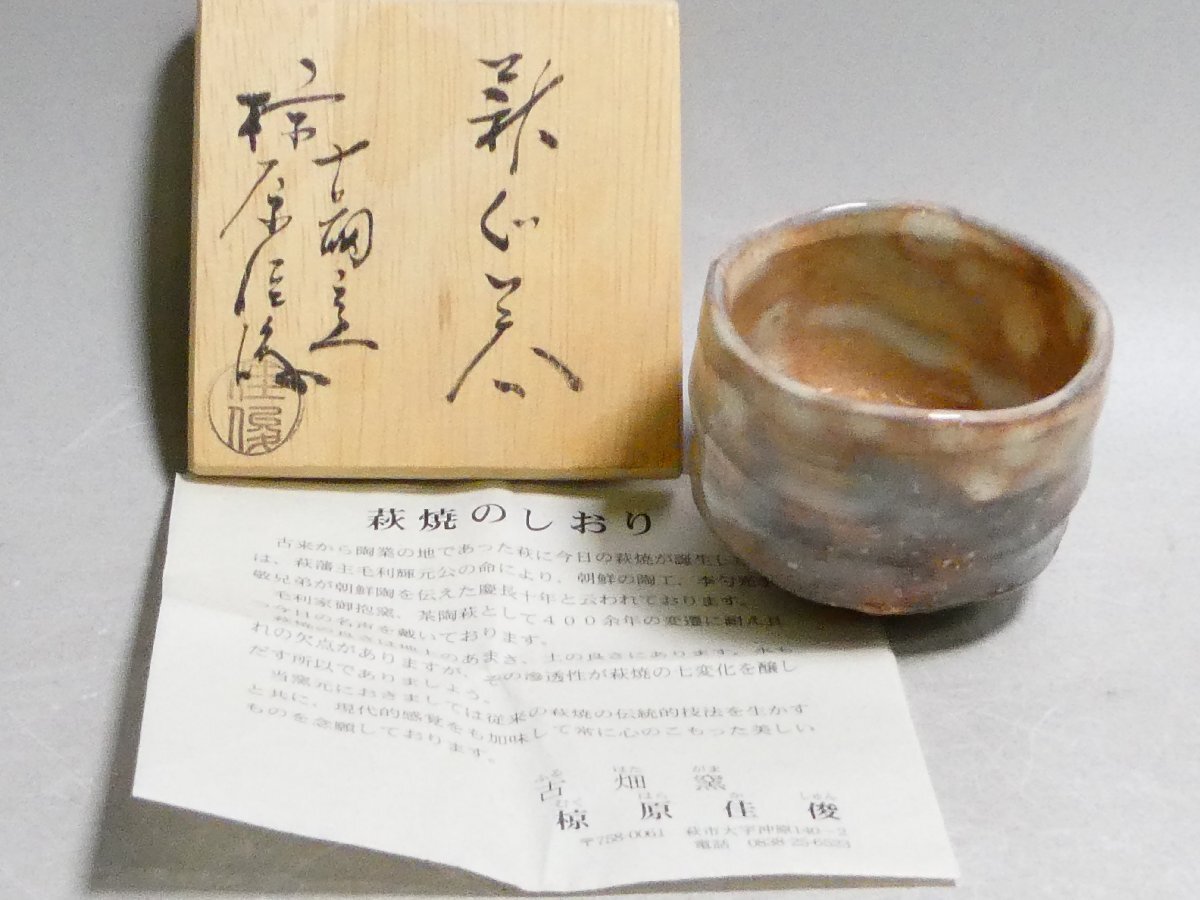 萩ぐい呑
古畑窯
椋原佳俊
佳俊
萩焼のしおり
古来から陶業の地であった萩に今日の萩焼が誕生し
は、萩藩主毛利輝元公の命により、朝鮮の陶工、李勺光
敬兄弟が朝鮮陶を伝えた慶長十年と云われております。
毛利家御抱窯、茶陶萩として400余年の変遷に耐え
今日の名声を戴いております。
萩焼の良さは焼上のあまさ、土の良さにあります。
れの欠点がありますが、その滲透性が萩焼の七変化を醸し
だす所以でありましょう。
当窯元におきましては従来の萩焼の伝統的技法を生かす
と共に、現代的感覚をも加味して常に心のこもった美しい
ものを念願しております。
ふる はた がま
古畑窯
むく はら か しゅん
椋原佳俊
〒758-0061 萩市大字沖原140-2
電話 0838-25-6523